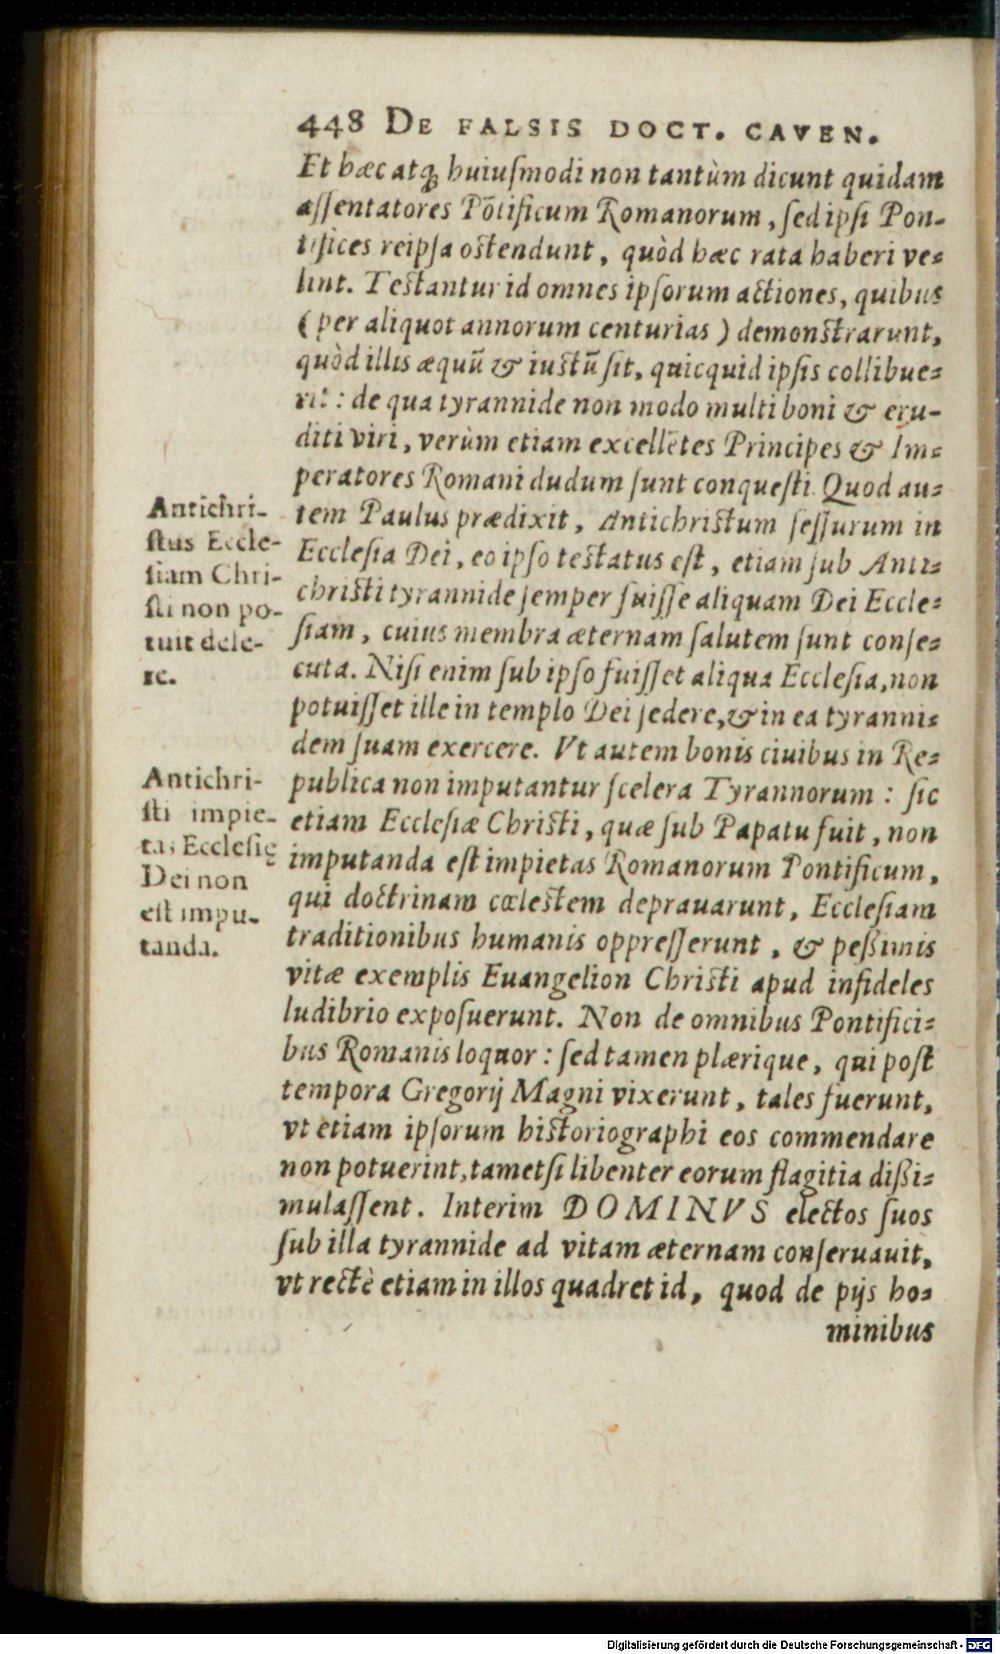 448 DE FALSIS DOCT. CAVEN.
Et hæc atq́; huiuſmodi non tantùm dicunt quidam
aſſentatores Põtificum Romanorum, ſed ipſi Pon-
tifices reipſa oſtendunt, quòd hæc rata haberi ve-
lint. Teſtantur id omnes ipſorum actiones, quibus
(per aliquot annorum centurias) demonſtrarunt,
quòd illis æquũ & iuſtũ ſit, quicquid ipſis collibue-
rit: de qua tyrannide non modo multi boni & eru-
diti viri, verùm etiam excellẽtes Principes & Im-
peratores Romani dudum ſunt conqueſti. Quod au-
tem Paulus prædixit, Antichriſtum ſeſſurum in
Eccleſia Dei, eo ipſo teſtatus eſt, etiam ſub Anti-
chriſti tyrannide ſemper fuiſſe aliquam Dei Eccle-
ſiam, cuius membra æternam ſalutem ſunt conſe-
cuta. Niſi enim ſub ipſo fuiſſet aliqua Eccleſia, non
potuiſſet ille in templo Dei ſedere, & in ea tyranni-
dem ſuam exercere. Vt autem bonis ciuibus in Re-
publica non imputantur ſcelera Tyrannorum: ſic
etiam Eccleſiæ Chriſti, quæ ſub Papatu fuit, non
imputanda eſt impietas Romanorum Pontificum,
qui doctrinam cœleſtem deprauarunt, Eccleſiam
traditionibus humanis oppreſſerunt, & peßimis
vitæ exemplis Euangelion Chriſti apud infideles
ludibrio expoſuerunt. Non de omnibus Pontifici-
bus Romanis loquor: ſed tamen plærique, qui poſt
tempora Gregorij Magni vixerunt, tales fuerunt,
vt etiam ipſorum hiſtoriographi eos commendare
non potuerint, tametſi libenter eorum flagitia dißi-
mulaſſent. Interim DOMINVS electos ſuos
ſub illa tyrannide ad vitam æternam conſeruauit,
vt rectè etiam in illos quadret id, quod de pijs ho-
minibus
Antichri-
ſtus Eccle-
ſiam Chri-
ſti non po-
tuit dele-
re.
Antichri-
ſti impie-
tas Eccleſię
Dei non
eſt impu-
tanda.
Digitalisierung gefördert durch die Deutsche Forschungsgemeinschaft - DFG